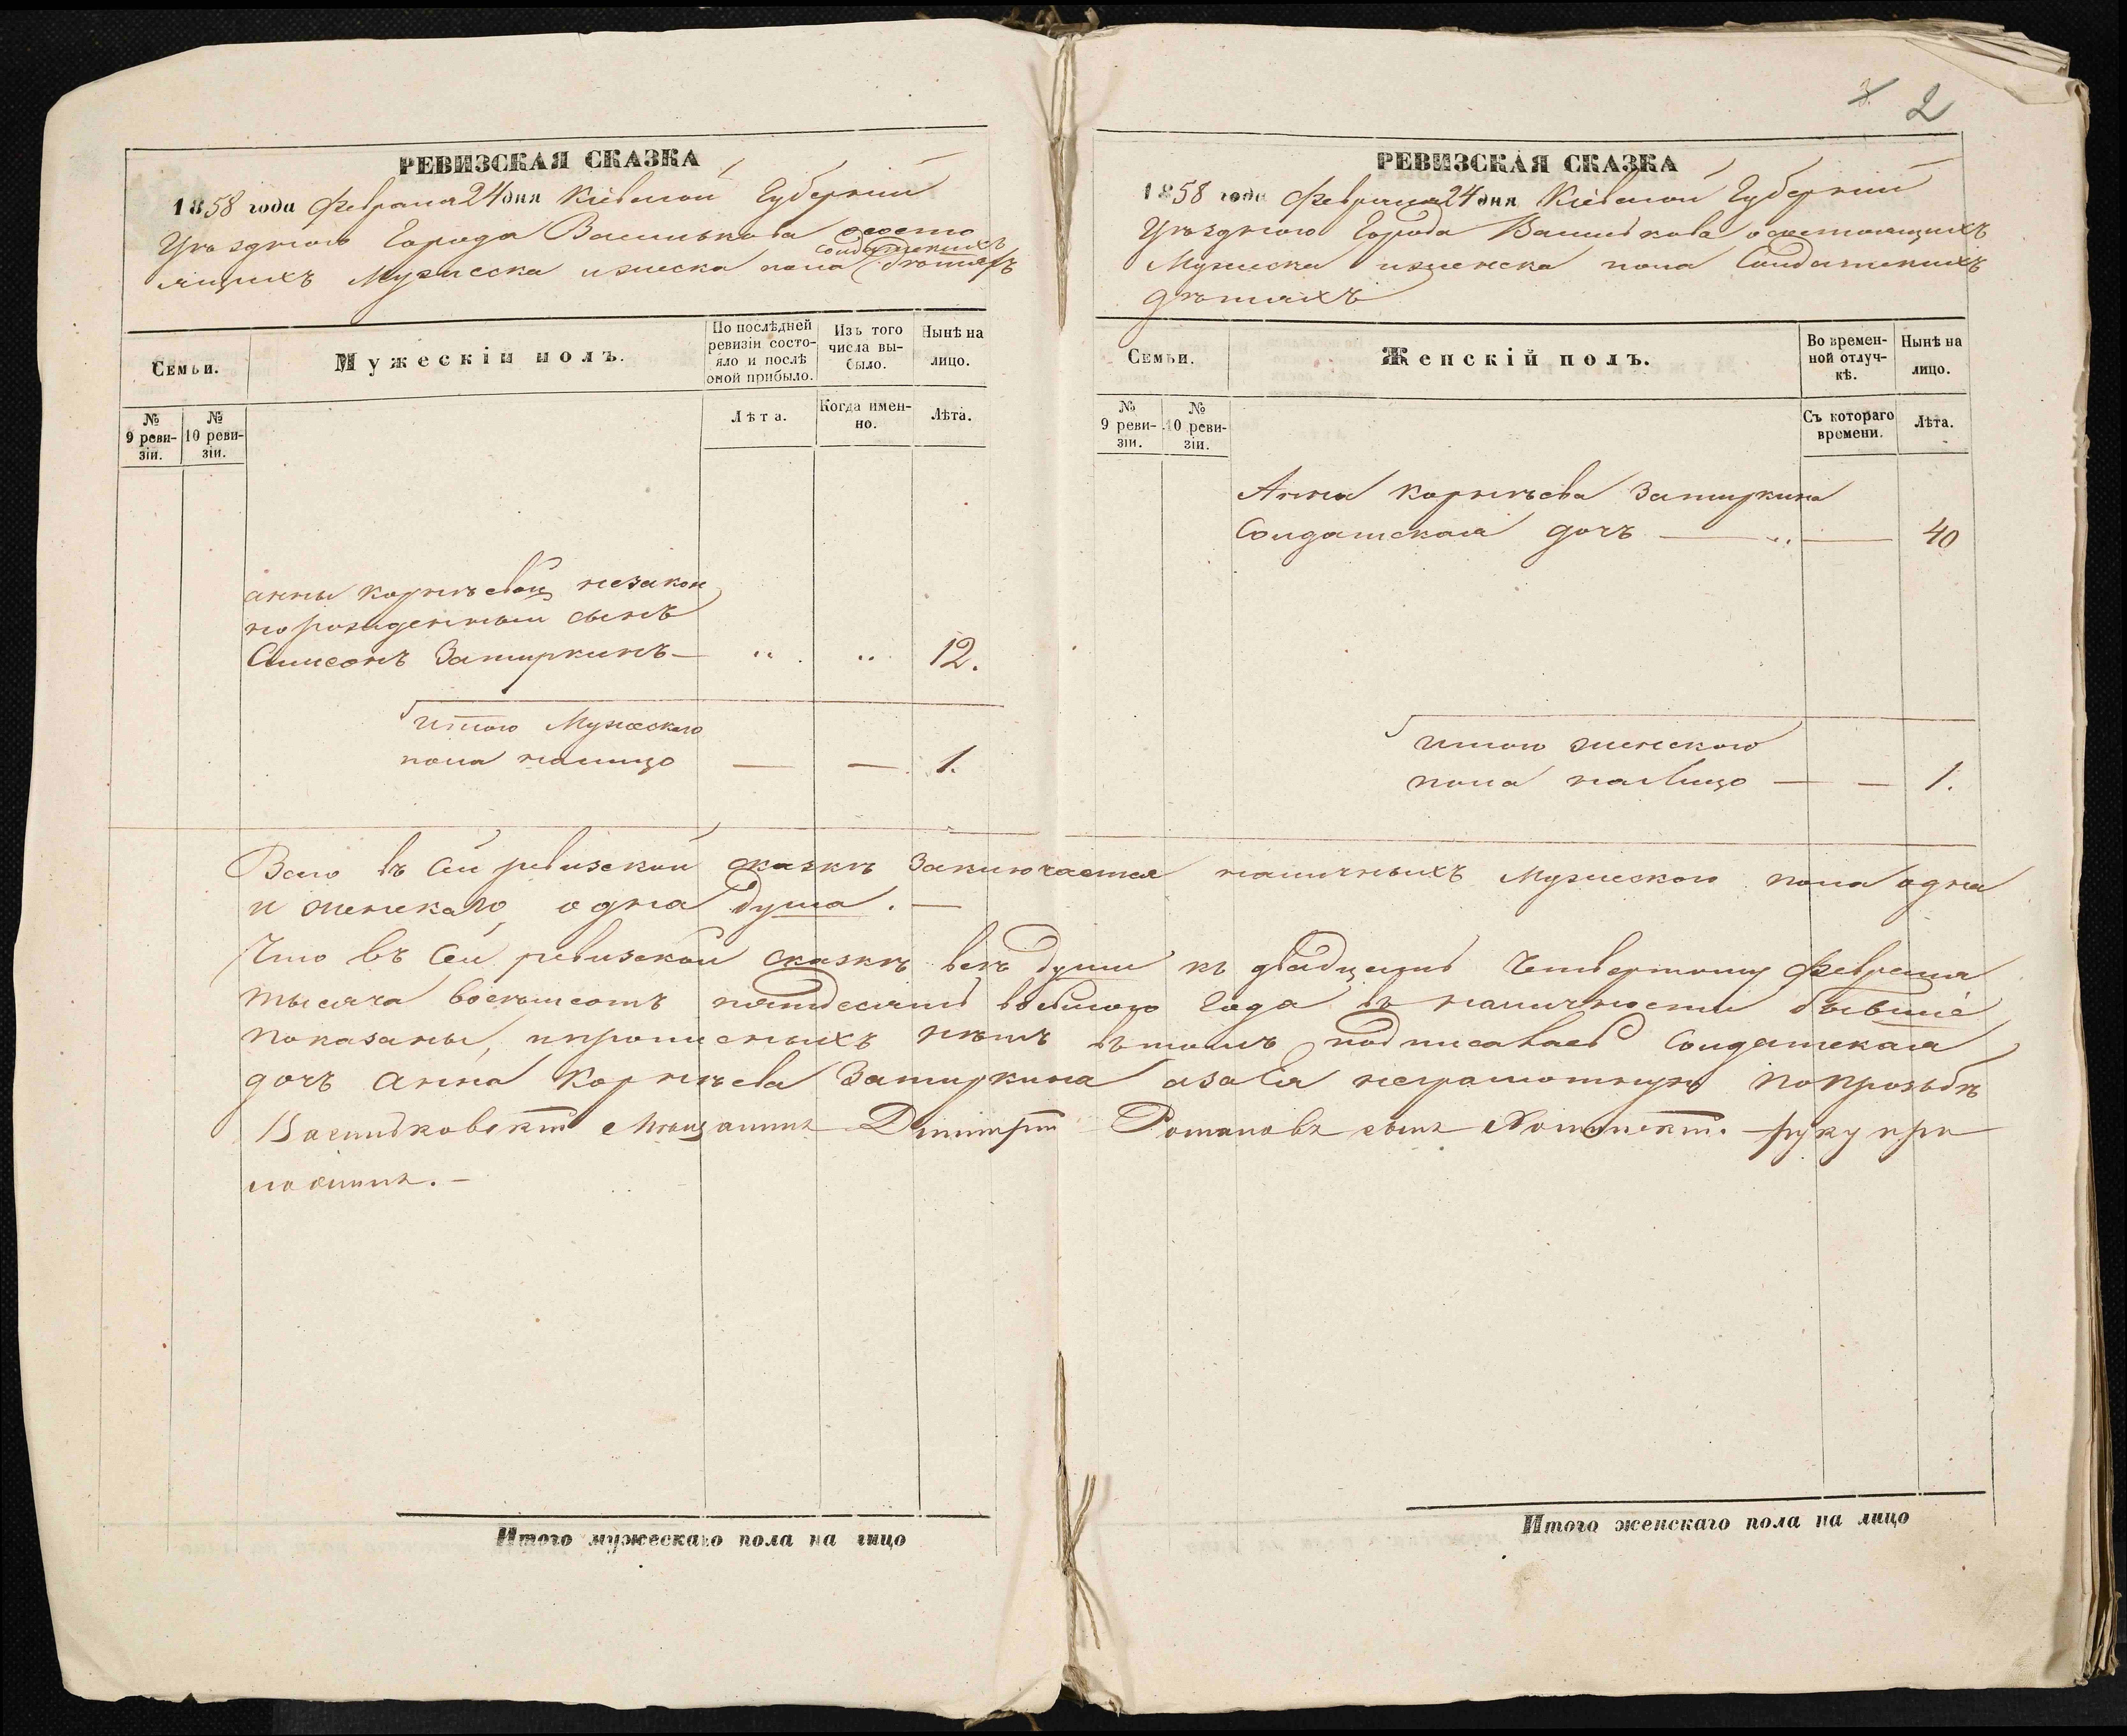 РЕВИЗСКАЯ СКАЗКА
1858 года Февраля 24 дня Кіевской Губерніи
Уѣзднаго Города Василькова осостο
Солдатскихъ
ящихъ Мужеска иженска пола дѣтяхъ
Семьи.
Мужескій полъ.
По послѣдней ревизіи состо-
яло и послѣ
оной прибыло.
Изъ того
числа вы-
было.
Нынѣ на
лицо.
№ 9 реви-
зіи.
№ 10 реви-
зіи.
Лѣта.
Когда имен-
но.
Лѣта.
анны Корнѣевой незакон
норожденный сынъ
Симеонъ Затиркинъ — „ „ 12.
Итого Мужескаго
пола налицо — — 1.
3 2
РЕВИЗСКАЯ СКАЗКА
1858 года Февраля 24 дня Кіевской Губерніи
Уѣзднаго Города Василькова осостоящихъ
Мужеска иженска пола Солдатскихъ
дѣтяхъ
Семьи.
Женскій полъ.
Во времен-
ной отлуч-
кѣ.
Нынѣ на
лицо.
№ 9 реви-
зіи.
№ 10 реви-
зіи.
Съ котораго
времени.
Лѣта.
Анна Корнѣева Затиркина
Солдатская дочь — „ — 40
Итого женскаго
пола на Лицо — — 1.
Всего въ Сей ревизской сказкѣ Заключается наличныхъ Мужескаго пола одна
и женскаго одна душа. —
Что въ Сей ревизской сказкѣ всѣ души къ двадцать Четвертому Февраля
тысяча восемьсотъ пятдесятъ восьмого Года въ наличности бывшіе
показаны, ипрописныхъ нѣтъ втомъ подписавась Солдатская
дочь Анна Корнѣева Затиркина азаСія неграмотную попрозьбѣ
Васильковскій Мѣщанинъ Дмитрій Романовъ сынъ руку при
ложилъ. —
Итого мужескаго пола на лицо
Итого женскаго пола на лицо